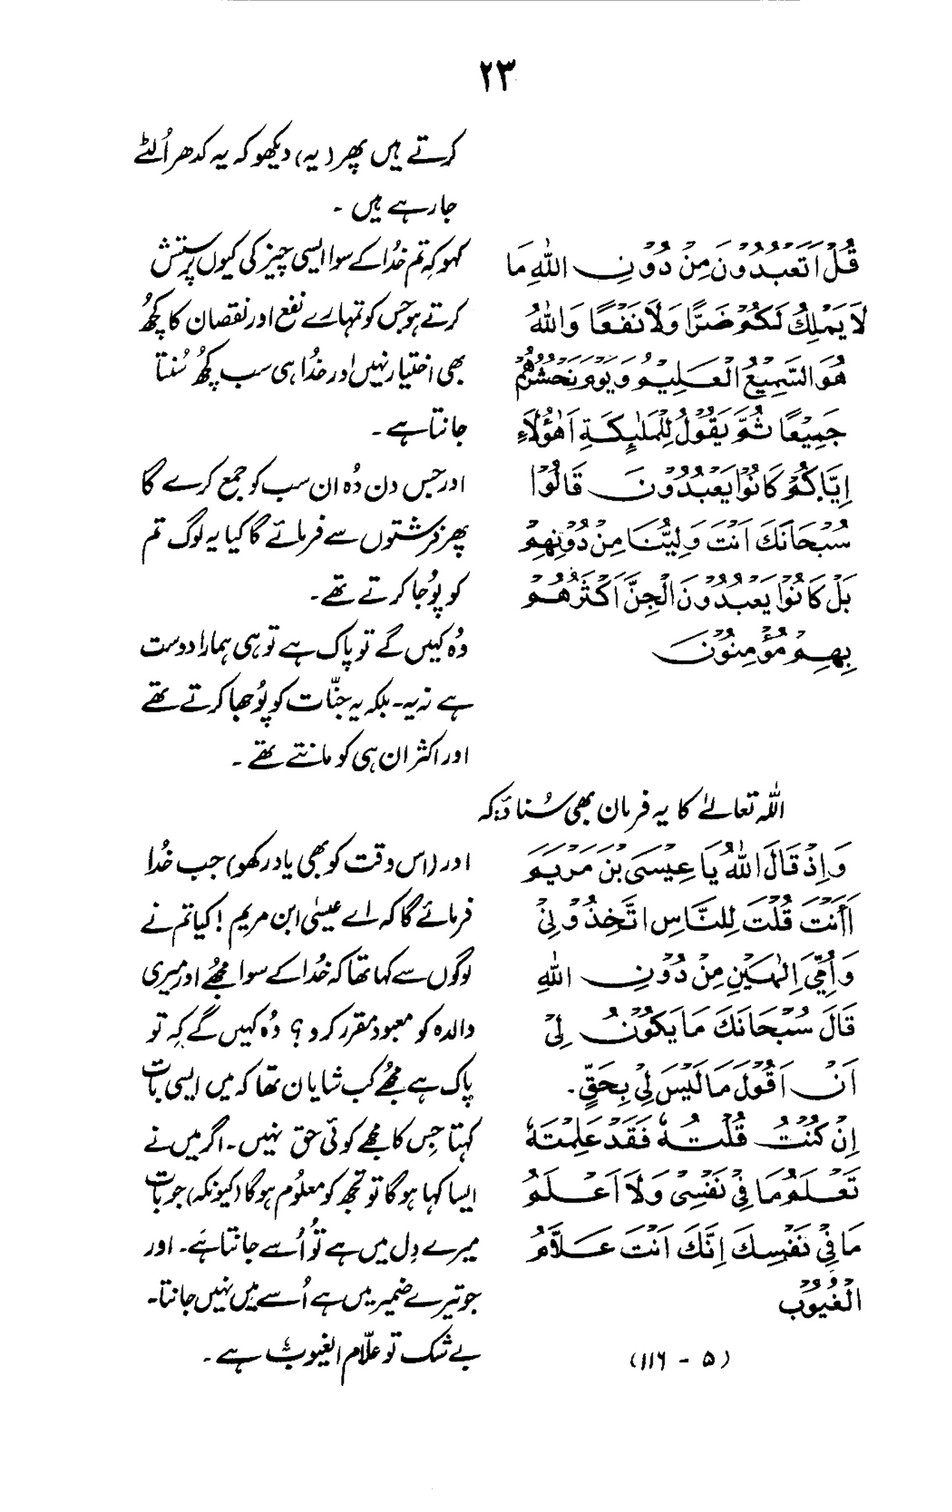 ۲۳
کرتے ہیں پھر (یہ) دیکھو کہ یہ کدھر اُلٹے
جا رہے ہیں ۔
قُلْ اَتَعْبُدُوْنَ مِنْ دُوْنِ اللّٰهِ مَا
لَا يَمْلِكُ لَكُمْ ضَرًّا وَّلَا نَفْعًا وَاللّٰهُ
هُوَ السَّمِيْعُ الْعَلِيْمُ وَيَوْمَ نَحْشُرُهُمْ
جَمِيْعًا ثُمَّ يَقُوْلُ لِلْمَلٰٓئِكَةِ اَهٰٓؤُلَآءِ
اِيَّاكُمْ كَانُوْا يَعْبُدُوْنَ قَالُوْا
سُبْحَانَكَ اَنْتَ وَلِيُّنَا مِنْ دُوْنِهِمْ
بَلْ كَانُوْا يَعْبُدُوْنَ الْجِنَّ اَكْثَرُهُمْ
بِهِمْ مُؤْمِنُوْنَ
کہو کہ تم خُدا کے سوا ایسی چیز کی کیوں پرستش
کرتے ہو جس کو تمہارے نفع اور نقصان کا کچھُ
بھی اختیار نہیں اور خُدا ہی سب کچُھ سُنتا
جانتا ہے ۔
اور جس دن وُہ ان سب کو جمع کرے گا
پھر فرشتوں سے فرمائے گا کیا یہ لوگ تم
کو پوُجا کرتے تھے ۔
وُہ کہیں گے تو پاک ہے تو ہی ہمارا دوست
ہے نہ یہ ۔ بلکہ یہ جنّات کو پوُجا کرتے تھے
اور اکثر ان ہی کو مانتے تھے ۔
اللہ تعالےٰ کا یہ فرمان بھی سُنا دو کہ
وَاِذْ قَالَ اللّٰهُ يَا عِيْسَى بْنَ مَرْيَمَ
أَأَنْتَ قُلْتَ لِلنَّاسِ اتَّخِذُوْنِيْ
وَاُمِّيَ اِلٰهَيْنِ مِنْ دُوْنِ اللّٰهِ
قَالَ سُبْحَانَكَ مَا يَكُوْنُ لِيْ
اَنْ اَقُوْلَ مَا لَيْسَ لِيْ بِحَقٍّ ۔
اِنْ كُنْتُ قُلْتُهٗ فَقَدْ عَلِمْتَهٗ
تَعْلَمُ مَا فِيْ نَفْسِيْ وَلَا اَعْلَمُ
مَا فِيْ نَفْسِكَ اِنَّكَ اَنْتَ عَلَّامُ
الْغُيُوْبِ
(۵ - ۱۱۶)
اور (اس وقت کو بھی یاد رکھو) جب خُدا
فرمائے گا کہ اے عیسیٰ ابن مریم ! کیا تم نے
لوگوں سے کہا تھا کہ خُدا کے سوا مجھے اور میری
والدہ کو معبود مقرر کرو ؟ وُہ کہیں گے کہ تو
پاک ہے مجھے کب شایان تھا کہ میں ایسی بات
کہتا جس کا مجھے کوئی حق نہیں ۔ اگر میں نے
ایسا کہا ہوگا تو تجھ کو معلوُم ہوگا (کیونکہ) جو بات
میرے دِل میں ہے تُو اُسے جانتا ہے ۔ اور
جو تیرے ضمیر میں ہے اُسے میں نہیں جانتا ۔
بے شک تو علّام الغیوب ہے ۔